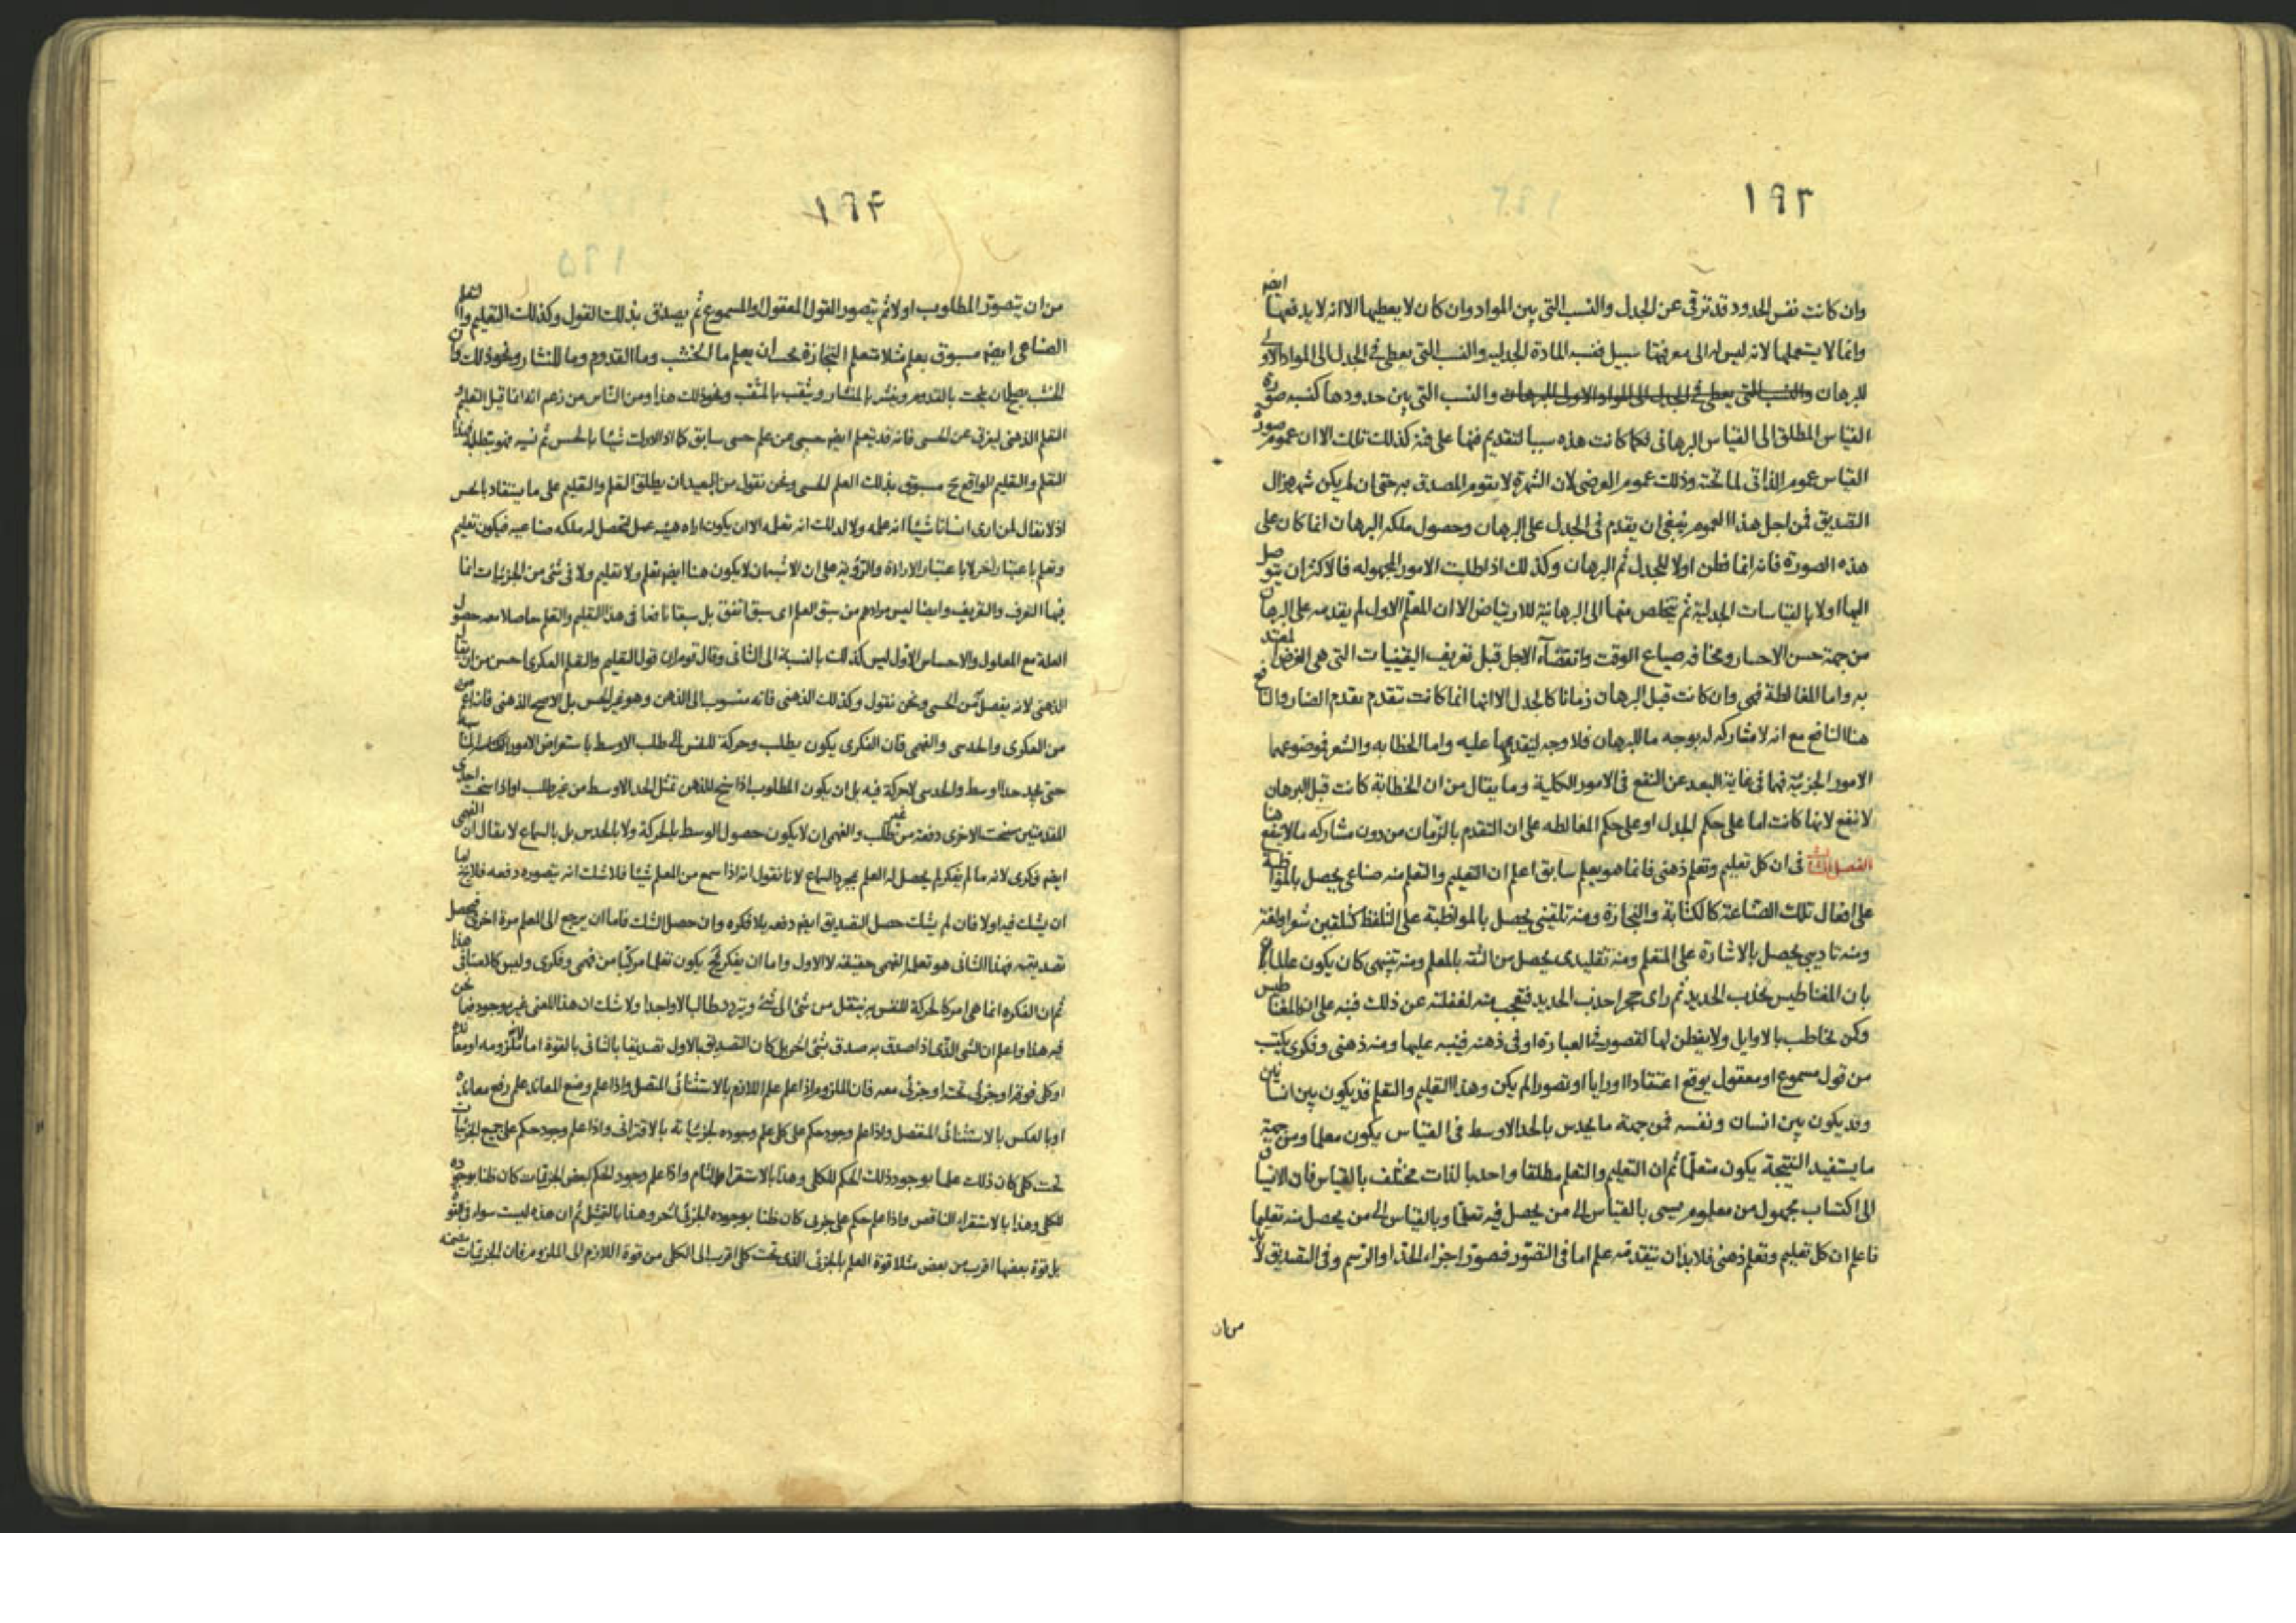 ١٩٣
وان كانت نفس الحدود قد ترقى عن الجدل والنسب التى بين المواد وان كان لا يعطيها الا انه لا يدفعها ايضا
وانما لا يستعملها لانه ليس له الى معرفتها سبيل فنسبة المادة الجدلية والنسب التى يعطى فى الجدل الى المواد الاولى
للبرهان والنسب التى يعطى فى الجدل الى المواد الاول للبرهان والنسب التى بين حدودها كنسبة صورة
القياس المطلق الى القياس البرهانى فكما كانت هذه سببا لتقديم فنها على فنه كذلك تلك الا ان عموم صورة
القياس عموم الذاتى لما تحته وذلك عموم العرضى لان الشهرة لا يقوم المصدق به حتى ان لم يكن شهر زال
التصديق فمن اجل هذا العموم ينبغى ان يقدم فى الجدل على البرهان وحصول ملكة البرهان انما كان على
هذه الصورة فانه انما فطن اولا للجدل ثم البرهان وكذلك اذا طلبت الامور المجهوله فالاكثر ان يتوصل
اليها اولا بالقياسات الجدلية ثم يتخلص منها الى البرهانية للارتياض الا ان المعلم الاول لم يقدمه على البرهان
من جهة حسن الاختيار ومخافة ضياع الوقت وانقضاء الاجل قبل تعريف اليقينيات التى هى الغرض المعتد
به واما المغالطة فهى وان كانت قبل البرهان زمانا كالجدل الا انها انما كانت تتقدم تقدم الضار والنافع
هنا النافع مع انه لا مشاركه له بوجه ما للبرهان فلا وجه لتقديمها عليه واما الخطابه والشعر فموضوعهما
الامور الجزئية فهما فى غاية البعد عن النفع فى الامور الكلية وما يقال من ان الخطابة كانت قبل البرهان
لا نفع لانها كانت اما على حكم الجدل او على حكم المغالطه على ان التقدم بالزمان من دون مشاركه ما لا ينفع هنا
الفصل الثالث فى ان كل تعليم وتعلم ذهنى فانما هو بعلم سابق اعلم ان التعليم والتعلم منه صناعى يحصل بالمواظبة
على افعال تلك الصناعة كالكتابة والنجارة ومنه تلقينى يحصل بالمواظبة على التلفظ كتلقين شعر او لغة
ومنه تاديبى يحصل بالاشارة على المتعلم ومنه تقليدى يحصل من الثقة بالمعلم ومنه تنبيهى كان يكون عالما
بان المغناطيس يجذب الحديد ثم راى حجرا جذب الحديد فتعجب منه لغفلته عن ذلك فنبه على انه المغناطيس
وكمن يخاطب بالاوايل ولا يفطن لها لقصور فى العبارة او فى ذهنه فينبه عليها ومنه ذهنى وفكرى يكتسب
من قول مسموع او معقول يوقع اعتقادا او رايا او تصورا لم يكن وهذا التعليم والتعلم قد يكون بين انسانين
وقد يكون بين انسان ونفسه فمن جهة ما يحدس بالحد الاوسط فى القياس يكون معلما ومن جهة
ما يستفيد النتيجة يكون متعلما ثم ان التعليم والتعلم مطلقا واحد بالذات مختلف بالقياس فان الانسياق
الى اكتساب مجهول من معلوم يسمى بالقياس الى من يحصل فيه تعلما وبالقياس الى من يحصل منه تعليما
فاعلم ان كل تعليم وتعلم ذهنى فلا بد ان يتقدمه علم اما فى التصور فصور اجزاء الحد او الرسم وفى التصديق لا بد
من ان
١٩٤
من ان يتصور المطلوب اولا ثم يتصور القول المعقول او المسموع ثم يصدق بذلك القول وكذلك التعليم والتعلم
الصناعى ايضا مسبوق بعلم مثلا متعلم النجارة يجب ان يعلم ما الخشب وما القدوم وما المنشار ونحو ذلك وان
الخشب يصلح لان ينحت بالقدوم وينشر بالمنشار ويثقب بالمثقب ونحو ذلك هذا ومن الناس من زعم انه انما قيل التعليم
التعلم الذهنى ليفرق عن الحسى فانه قد يتعلم ايضا حسى عن علم حسى سابق كما اذا ادرك شيئا بالحس ثم نسيه فهو يتطلبه فهذا
التعلم والتعليم الواقع ح مسبوق بذلك العلم الحسى ونحن نقول من البعيد ان يطلق التعلم والتعليم على ما يستفاد بالحس
اذ لا يقال لمن ارى انسانا شيئا انه علمه ولا لذلك انه تعلمه الا ان يكون اراه هيئة عمل لتحصل له ملكة صناعيه فيكون تعليم
وتعلم باعتبار اخر لا باعتبار الاراءة والرؤية على ان الاشبه ان لا يكون هنا ايضا تعلم ولا تعليم ولا فى شئ من الجزئيات انما
فيها التعرف والتعريف وايضا ليس مرادهم من سبق العلم اى سبق اتفق بل سبقا نافعا فى هذا التعليم والتعلم حاصلا معه حصول
العلة مع المعلول والاحساس الاول ليس كذلك بالنسبة الى الثانى وقال قوم ان قول التعليم والتعلم الفكرى احسن من ان يقال
الذهنى لانه يفصل من الحسى ونحن نقول وكذلك الذهنى فانه منسوب الى الذهن وهو غير الحس بل الاصح الذهنى فانه اعم من
من الفكرى والحدسى والفهمى فان الفكرى يكون بطلب وحركة للنفس فى طلب الاوسط باستعراض الامور المناسبة
حتى يجد حدا اوسط والحدسى لا حركة فيه بل ان يكون المطلوب اذا سنح للذهن تمثل الحد الاوسط من غير طلب او اذا سنحت احدى
المقدمتين سنحت الاخرى دفعة من غير طلب والفهم ان لا يكون حصول الوسط بالحركة ولا بالحدس بل بالسماع لا يقال ان الفهمى
ايضا فكرى لانه ما لم يفكر لم يحصل له العلم بمجرد السماع لانا نقول انه اذا سمع من المعلم شيئا فلا شك انه يتصوره دفعه فلا يخ اما
ان يشك فيه اولا فان لم يشك حصل التصديق ايضا دفعه بلا فكره وان حصل الشك فاما ان يرجع الى المعلم مرة اخرى فيحصل
تصديقه فهذا الثانى هو تعلم الفهمى حقيقة لا الاول واما ان يفكر فح يكون تعلما مركبا من فهمى وفكرى وليس كلامنا فى هذا
ثم ان الفكره انما هى امر كالحركة للنفس به ينتقل من شئ الى شئ ويتردد طالبا لا واجدا ولا شك ان هذا المعنى غير موجود فيما نحن
فيه هذا واعلم ان الشئ الذى اذا صدق به صدق بشئ اخر بل كان التصديق بالاول تصديقا بالثانى بالقوة اما ملزومه او معانده
او كلى فوقه او جزئى تحته او جزئى معه فان الملزوم اذا علم علم اللازم بالاستثنائى المتصل واذا علم وضع المعاند علم رفع معانده
او بالعكس بالاستثنائى المنفصل واذا علم وجود حكم على كلى علم وجوده لجزئياته بالاقترانى واذا علم وجود حكم على جميع الجزئيات
تحت كلى كان ذلك علما بوجود ذلك الحكم للكلى وهذا بالاستقراء التام واذا علم وجود الحكم لبعض الجزئيات كان ظنا بوجوده
للكلى وهذا بالاستقراء الناقص واذا علم حكم على جزئى كان ظنا بوجوده لجزئى اخر وهذا بالتمثيل ثم ان هذه ليست سواء فى القوة
بل قوة بعضها اقرب من بعض مثلا قوة العلم بالجزئى الذى تحت كلى اقرب الى الكلى من قوة اللازم الى الملزوم فان الجزئيات